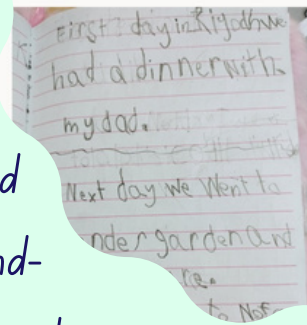 First day in Riyadh we
had a dinner with
my dad.
Next day we Went to
nder garden and
re.
to Nof
d
nd-